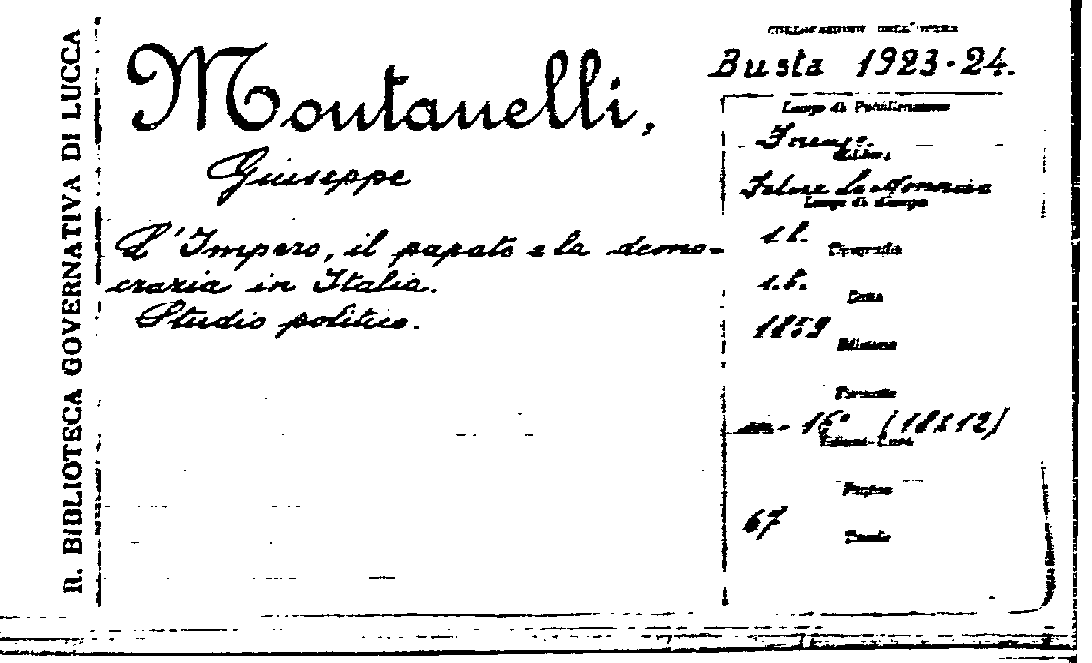 R. BIBLIOTECA GOVERNATIVA DI LUCCA
Montanelli,
Giuseppe
L'Impero, il papato e la demo-
crazia in Italia.
Studio politico.
COLLOCAZIONE DELL'OPERA
Busta 1923-24.
Luogo di Pubblicazione
Firenze.
Editore
Felice Le Monnier
Luogo di stampa
s.l.
Tipografia
s.t.
Data
1859
Edizione
Formato
in-16° (18x12)
Pagine
67
Tavole